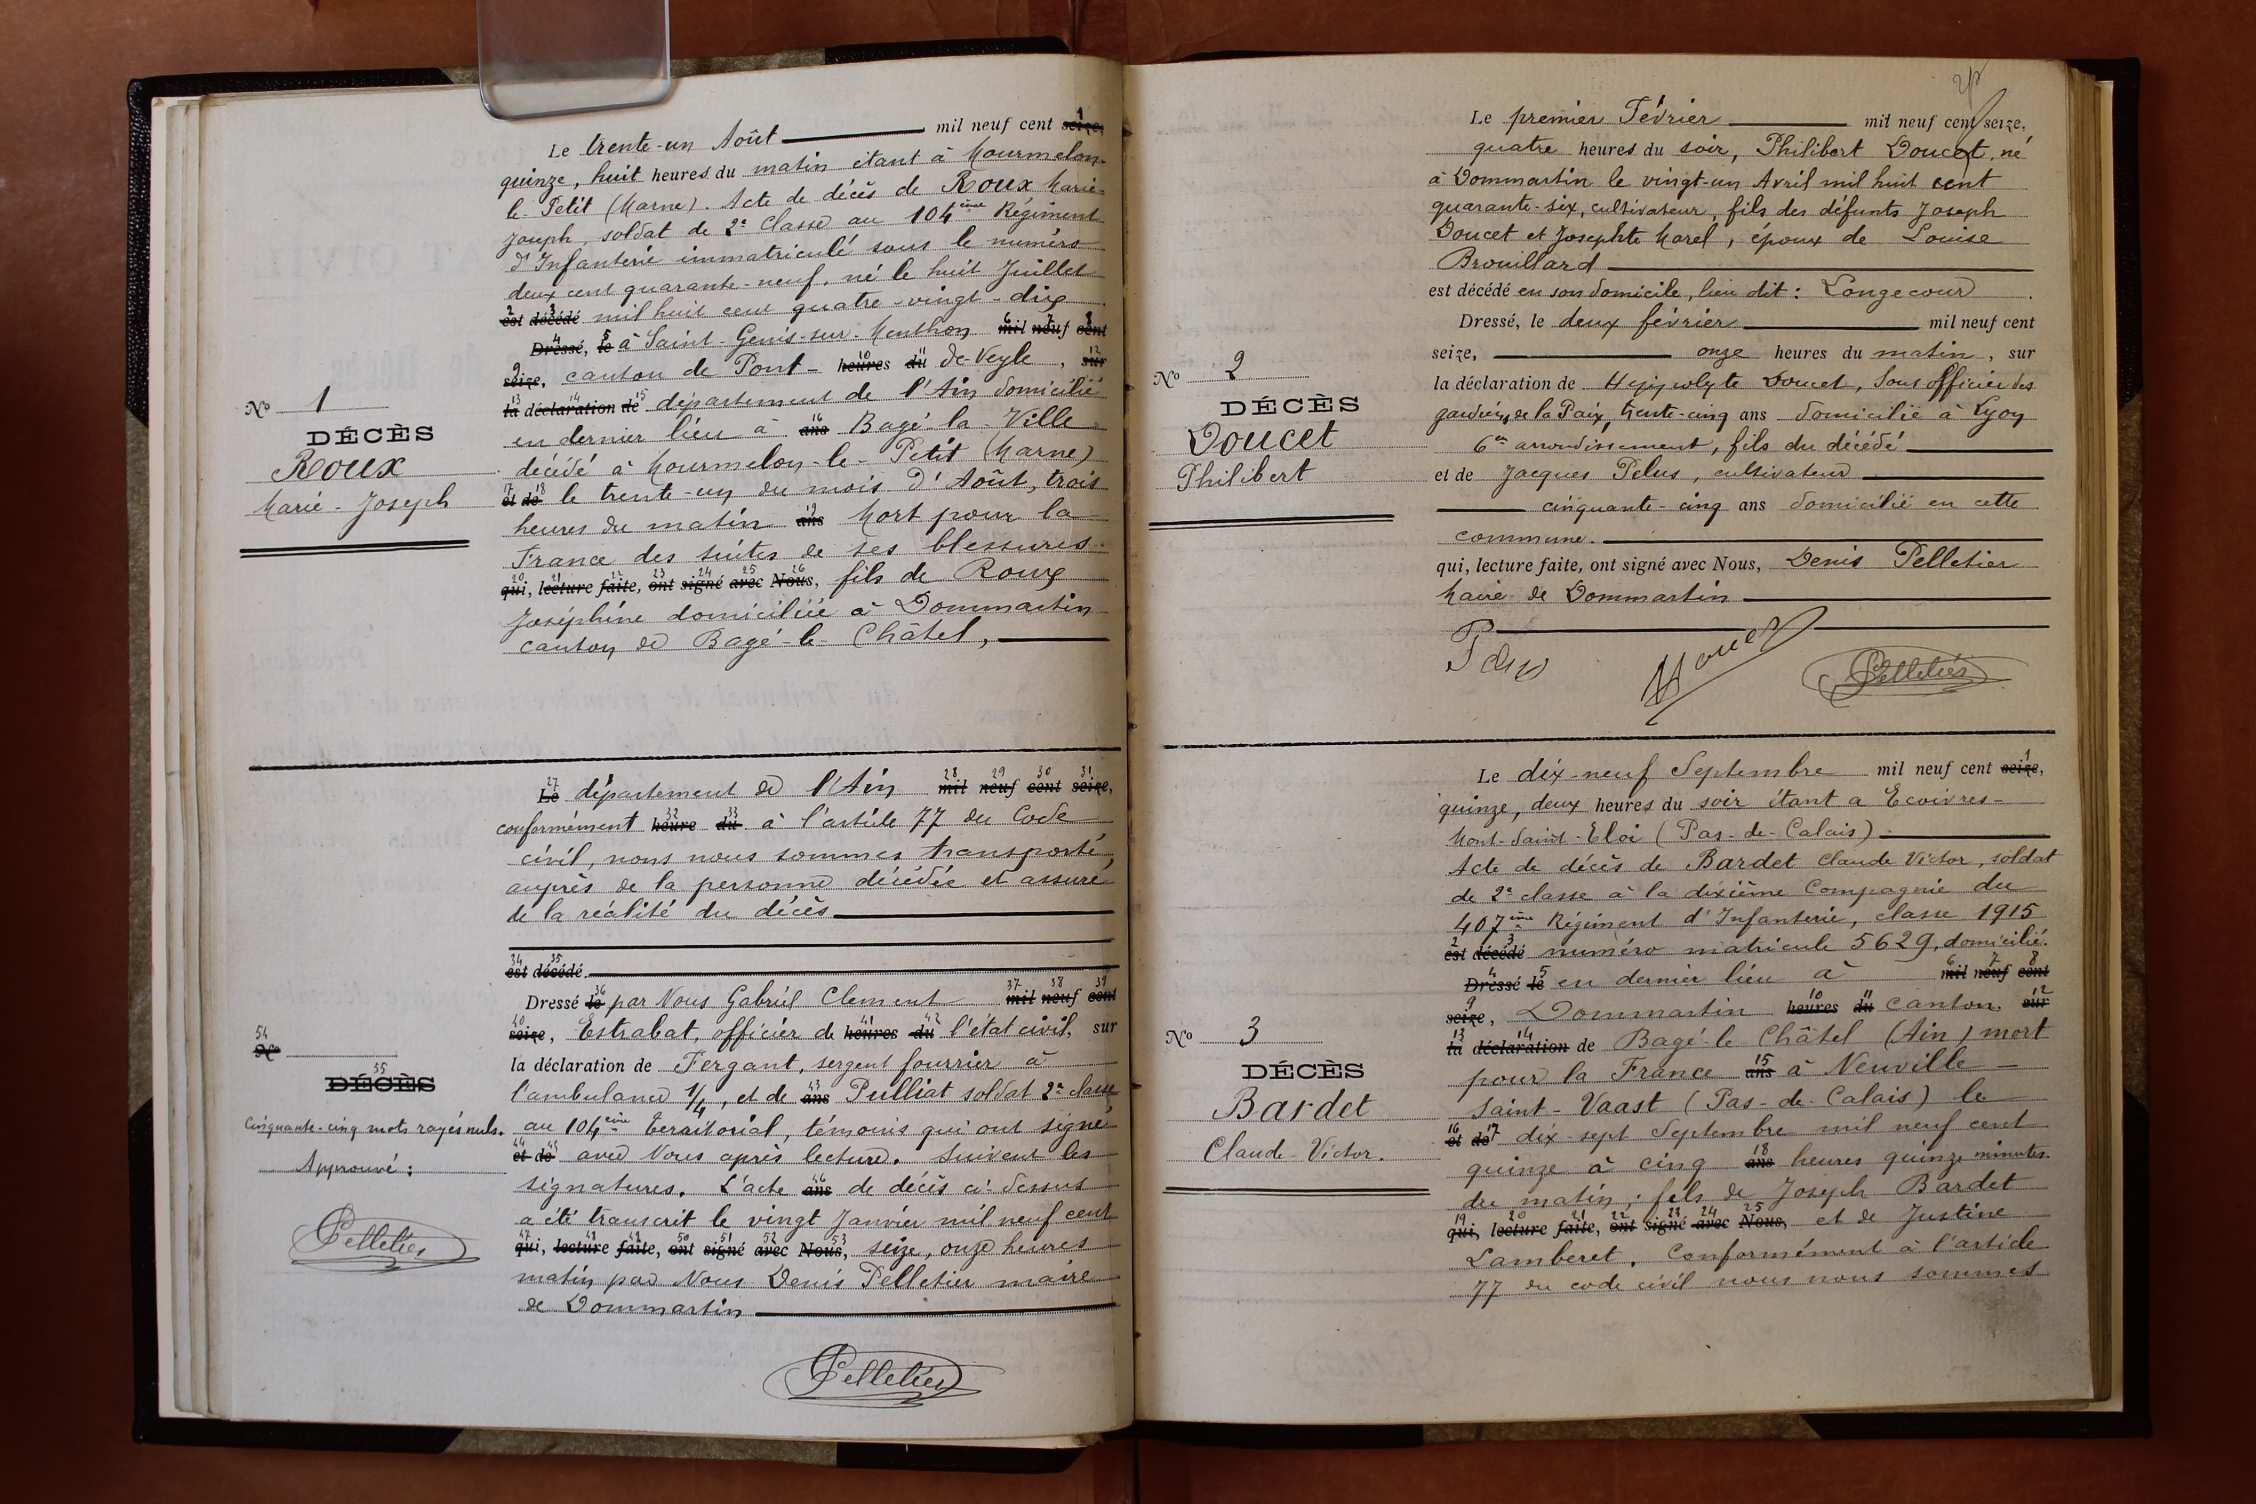 Le trente-un Août mil neuf cent seize,
1
quinze, huit heures du matin étant à Mourmelon-
le-Petit (Marne). Acte de décès de Roux Marie-
Joseph, soldat de 2e Classe au 104ème Régiment
d'Infanterie immatriculé sous le numéro
deux cent quarante-neuf, né le huit Juillet
2 3
est décédé mil huit cent quatre-vingt-dix
4 5 6 7 8
Dressé, le à Saint-Genis-sur-Menthon mil neuf cent
9 10 11 12
seize, canton de Pont- heures du de-Veyle, sur
13 14 15
la déclaration de département de l'Ain domicilié
16
en dernier lieu à ans Bagé-la-Ville
décédé à Mourmelon-le-Petit (Marne)
17 18
et de le trente-un du mois d'Août, trois
19
heures du matin ans Mort pour la
France des suites de ses blessures
20 21 22 23 24 25 26
qui, lecture faite, ont signé avec Nous, fils de Roux
Joséphine domiciliée à Dommartin
canton de Bagé-le-Châtel,
No 1
DÉCÈS
Roux
Marie-Joseph
27 28 29 30 31
Le département de l'Ain mil neuf cent seize,
32 33
conformément heure du à l'article 77 du Code
civil, nous nous sommes transporté
auprès de la personne décédée et assuré
de la réalité du décès
34 35
est décédé.
36 37 38 39
Dressé le par Nous Gabriel Clement mil neuf cent
40 41 42
seize, Estrabat, officier de heures du l'état civil, sur
la déclaration de Fergant, sergent fourrier à
43
l'ambulance 1/4, et de ans Pulliat soldat 2e classe
au 104ème territorial, témoins qui ont signé
44 45
et de avec Nous après lecture. Suivent les
46
signatures. L'acte ans de décès ci-dessus
a été transcrit le vingt Janvier mil neuf cent
47 48 49 50 51 52 53
qui, lecture faite, ont signé avec Nous, seize, onze heures
matin par Nous Denis Pelletier maire
de Dommartin
Pelletier
54
No
55
DÉCÈS
Cinquante-cinq mots rayés nuls.
Approuvé:
Pelletier
Le premier Février mil neuf cent seize,
quatre heures du soir, Philibert Doucet, né
à Dommartin le vingt-un Avril mil huit cent
quarante-six, cultivateur, fils des défunts Joseph
Doucet et Josephte Morel, époux de Louise
Brouillard
est décédé en son domicile, lieu dit: Longecour.
Dressé, le deux février mil neuf cent
seize, onze heures du matin, sur
la déclaration de Hyppolyte Doucet, Sous officier des
gardiens de la Paix, trente-cinq ans domicilié à Lyon
6e arrondissement, fils du décédé
et de Jacques Pelus, cultivateur
cinquante-cinq ans domicilié en cette
commune.
qui, lecture faite, ont signé avec Nous, Denis Pelletier
Maire de Dommartin
Pelletier
No 2
DÉCÈS
Doucet
Philibert
1
Le dix-neuf Septembre mil neuf cent seize,
quinze, deux heures du soir étant à Ecoivres-
Mont-Saint-Eloi (Pas-de-Calais)
Acte de décès de Bardet Claude Victor, soldat
de 2e classe à la dixième Compagnie du
407ème Régiment d'Infanterie, classe 1915
2 3
est décédé numéro matricule 5629, domicilié
4 5 6 7 8
Dressé le en dernier lieu à mil neuf cent
9 10 11 12
seize, Dommartin heures du canton sur
13 14
la déclaration de Bagé-le Châtel (Ain) mort
15
pour la France ans à Neuville-
Saint-Vaast (Pas-de-Calais) le
16 17
et de dix-sept Septembre mil neuf cent
18
quinze à cinq ans heures quinze minutes
du matin; fils de Joseph Bardet
19 20 21 22 23 24 25
qui, lecture faite, ont signé avec Nous, et de Justine
Lamberet. Conformément à l'article
77 du code civil nous nous sommes
No 3
DÉCÈS
Bardet
Claude-Victor.